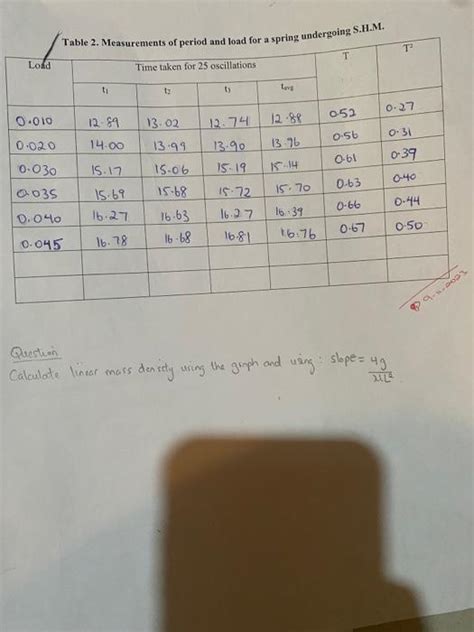 Table 2. Measurements of period and load for a spring undergoing S.H.M.
Load Time taken for 25 oscillations T T²
t₁ t₂ t₃ tavg
0.010 12.89 13.02 12.74 12.88 0.52 0.27
0.020 14.00 13.99 13.90 13.96 0.56 0.31
0.030 15.17 15.06 15.19 15.14 0.61 0.39
0.035 15.69 15.68 15.72 15.70 0.63 0.40
0.040 16.27 16.63 16.27 16.39 0.66 0.44
0.045 16.78 16.68 16.81 16.76 0.67 0.50
Question
Calculate linear mass density using the graph and using : slope = 4g